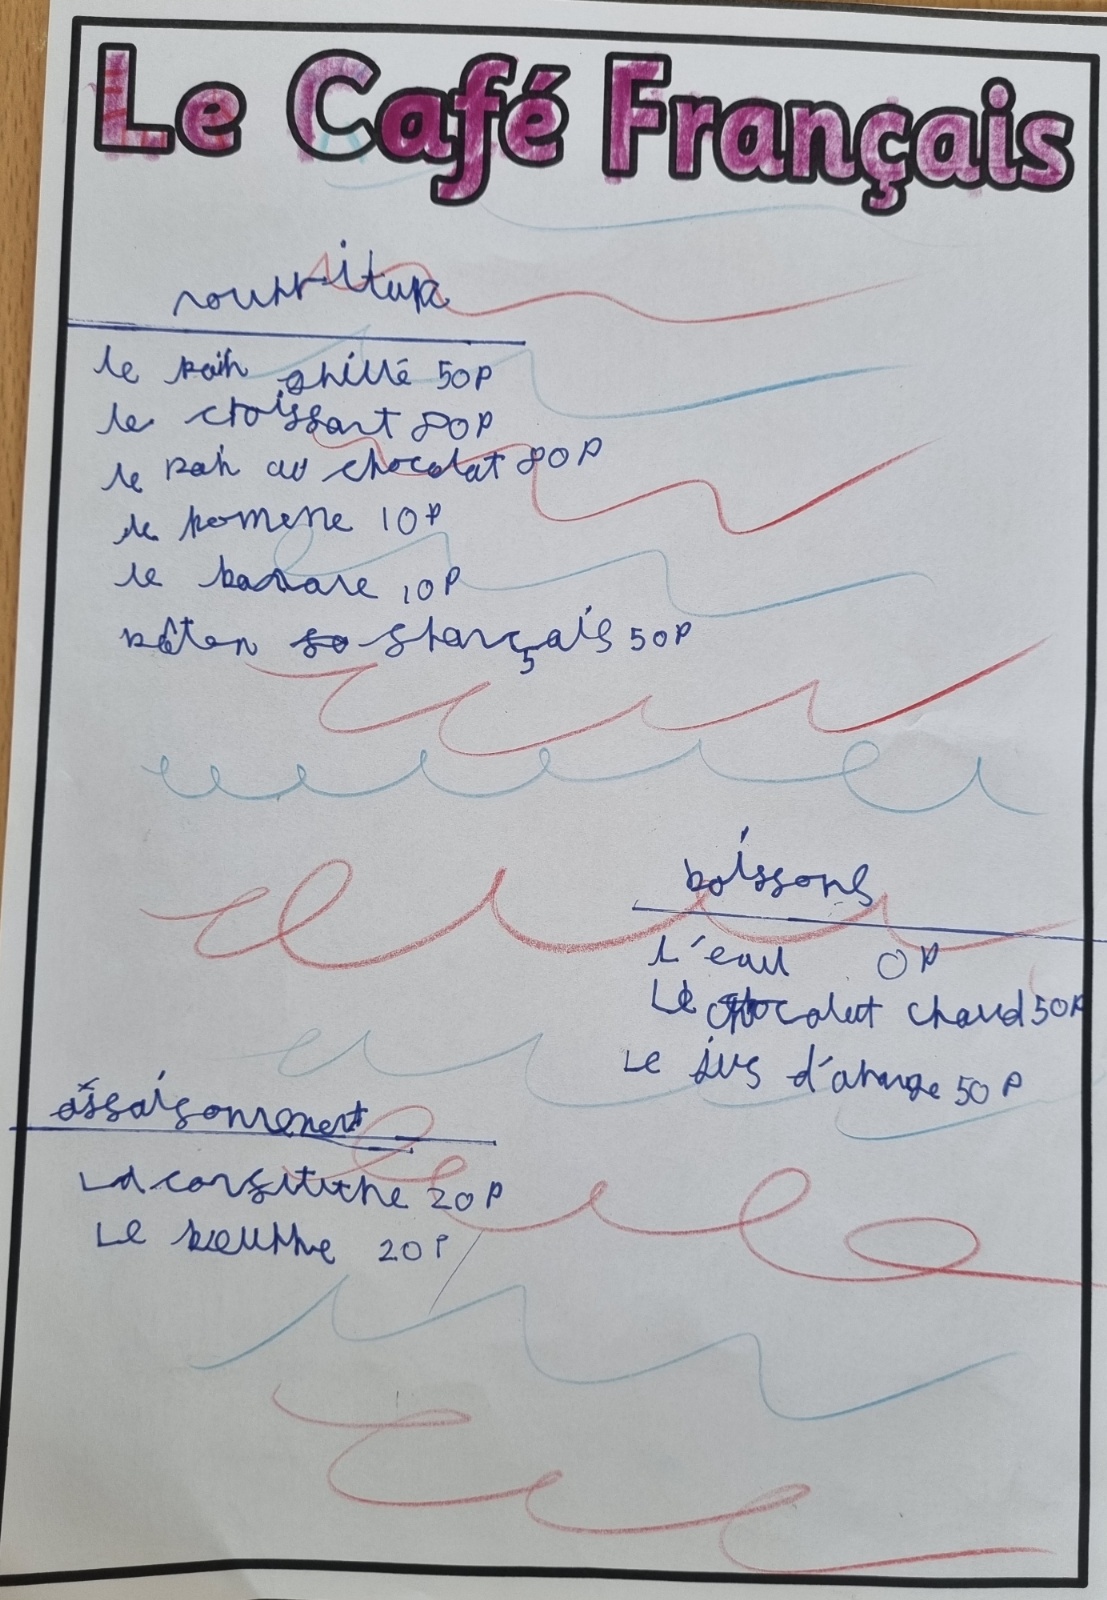 Le Café Français
nourriture
le pain grillé 50p
le croissant 80p
le pain au chocolat 80p
le pomme 10p
le banane 10p
bâton français 50p
boissons
L'eau 0p
Le chocolat chaud 50p
Le jus d'orange 50p
assaisonnement
La confiture 20p
Le beurre 20p